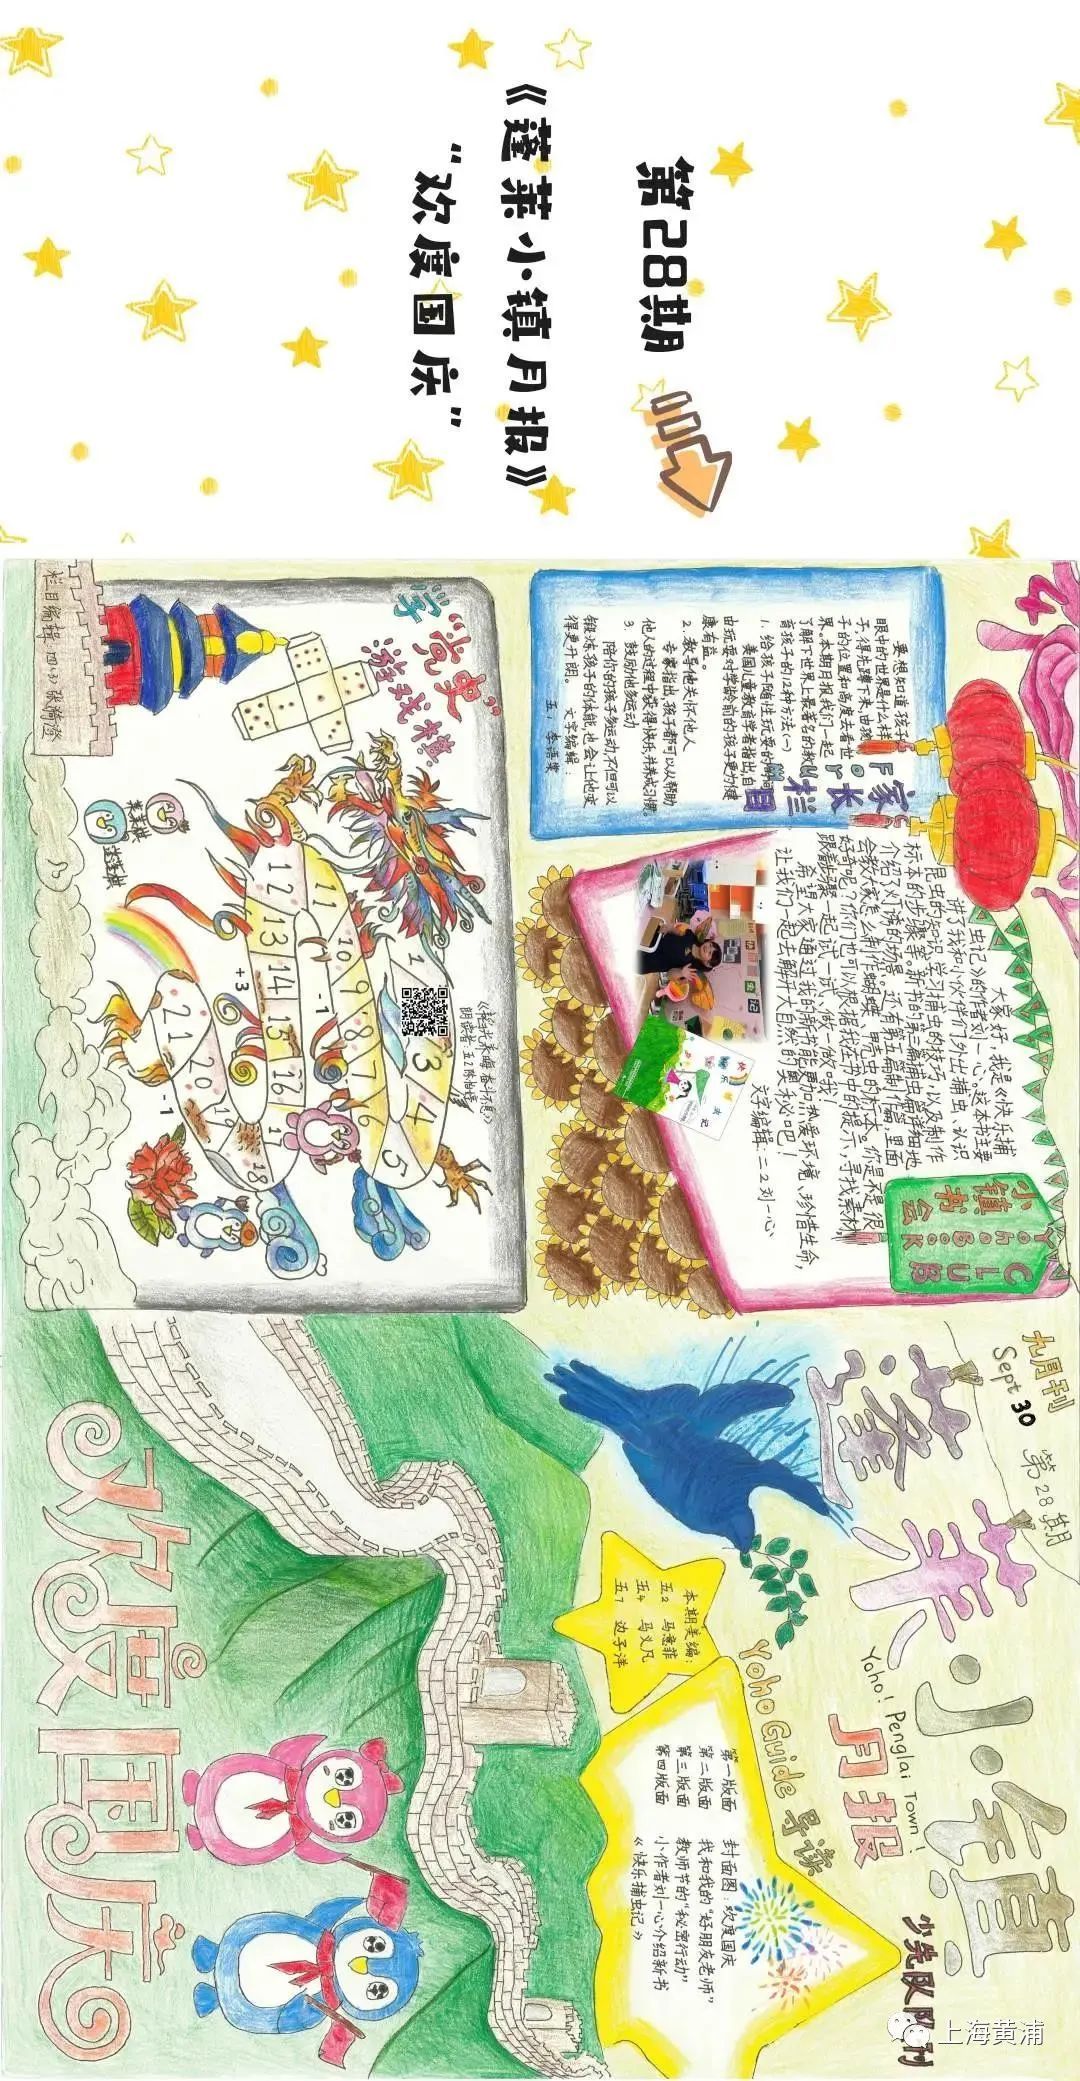 第28期
《蓬莱小镇月报》
“欢度国庆”
九月刊
Sept 30
第28期
蓬莱小镇
Yoho! Penglai Town!
月报
少先队队刊
Yoho Guide 导读
第一版面 封面图:欢度国庆
第二版面 我和我的“好朋友老师”
第三版面 教师节的“秘密行动”
第四版面 小作者刘一心介绍新书
《快乐捕虫记》
本期美编:
五2 马意菲
五4 马义凡
五7 边子洋
欢度国庆
4
家长栏目
For
要想知道孩子
眼中的世界是什么样
子,得先蹲下来,由孩
子的位置和高度去看世
界。本期月报我们一起
了解下世界上最著名的教
育孩子的12种方法(一)
1. 给孩子随性玩耍的时间
美国儿童教育学者指出自
由玩耍对学龄前的孩子更为健
康有益。
2. 教导他关怀他人
专家指出,孩子都可以从帮助
他人的过程中获得快乐,并养成习惯。
3. 鼓励他多运动
陪你的孩子多运动,不但可以
锻炼孩子的体能,也会让他变
得更开朗。 文字编辑:
五1 李语雯
小镇书会
YohoBook
CLUB
大家好,我是《快乐捕
虫记》的作者刘一心。这本书主要
讲了我和小伙伴们外出捕虫、认识
昆虫的知识、学习捕虫的技巧,以及制作
标本的步骤等等。新书的第三篇捕虫篇详细地
介绍了外诱的场景。还有第五篇制作篇,里面
会教大家怎么制作蝴蝶、甲壳虫的标本。你是不是很
好奇呢?你们也可以根据我在书中的提示,寻找素材,
跟着步骤一起试一试、做一做哦!
希望大家通过我的新书能更加热爱环境、珍惜生命,
让我们一起去解开大自然的奥秘吧!
文字编辑:二2 刘一心
学“党史”
游戏棋
莱莱棋
蓬蓬棋
1
3
4
5
6
7
9
10
11
12
13
14
15
16
18
19
20
21
+3
-1
-1
上海黄浦